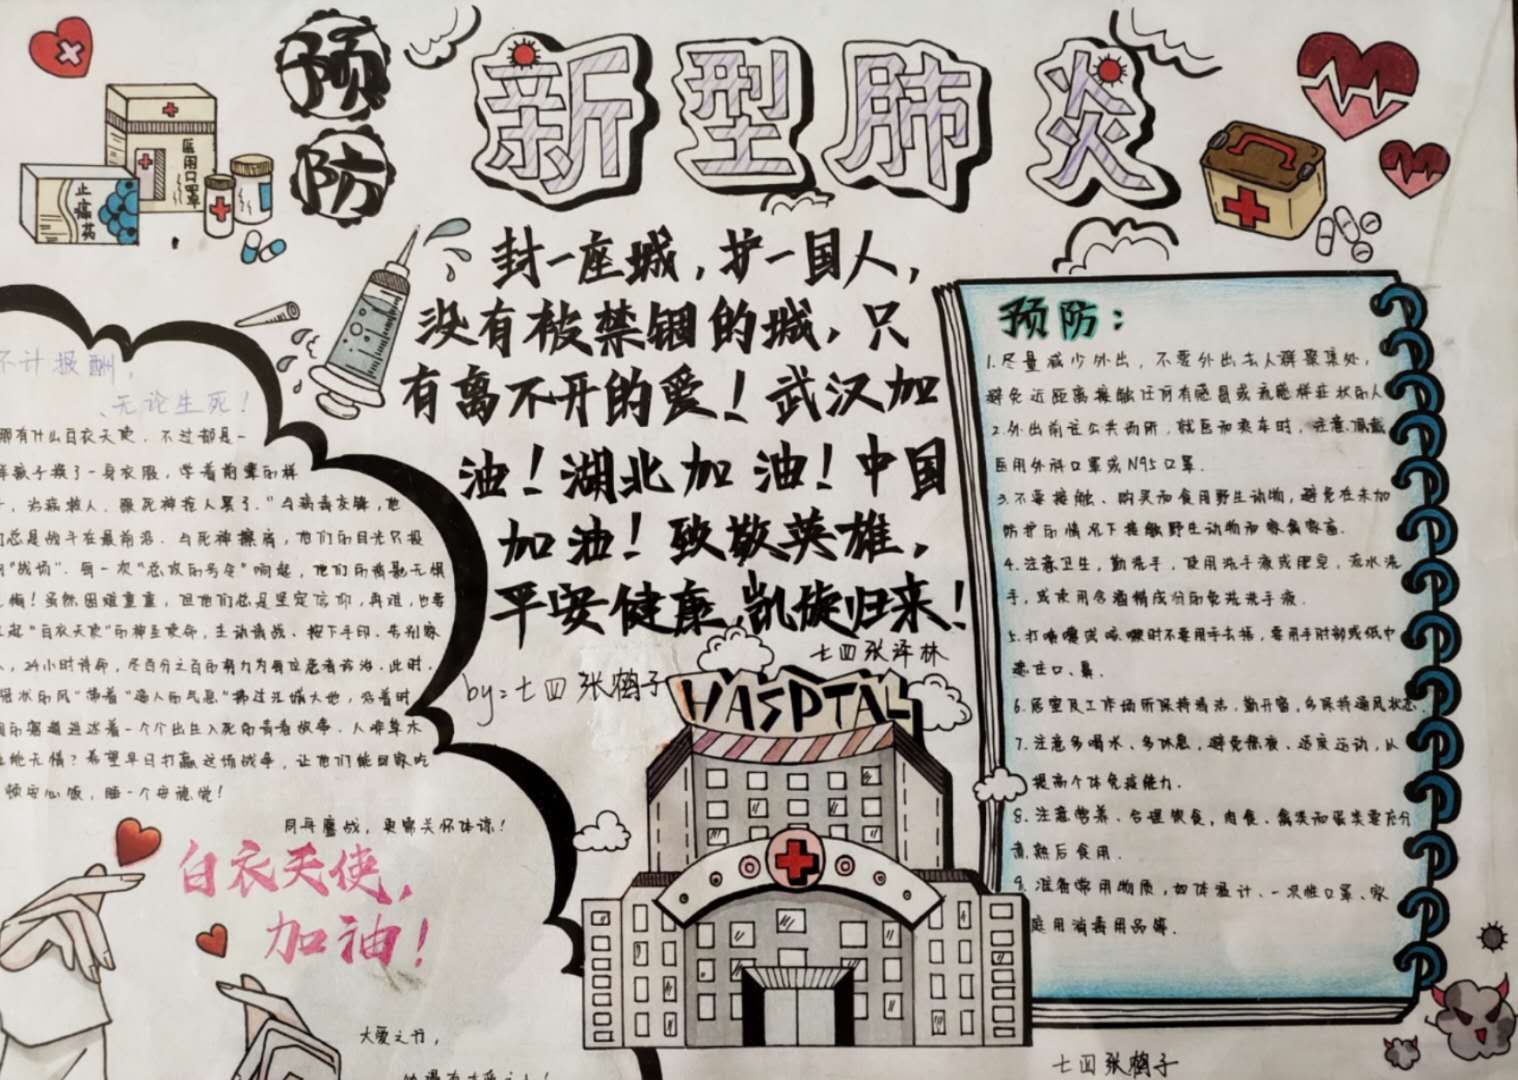 预防
新型肺炎
医用口罩
止痛药
封一座城，护一国人，
没有被禁锢的城，只
有离不开的爱！武汉加
油！湖北加油！中国
加油！致敬英雄，
平安健康，凯旋归来！
七四张泽林
by：七四张鹤子
HASPTAL
不计报酬，
无论生死！
那有什么白衣天使，不过都是一
群孩子换了一身衣服，学着前辈的样
，治病救人、跟死神抢人罢了．”与病毒交锋，他
们总是战斗在最前沿．与死神擦肩，他们的目光只投
向“战场”．每一次“总攻的号令”响起，他们的消息无惧
无悔！虽然困难重重，但他们总是坚定信仰，再难，也要
“白衣天使”的神圣使命，主动请战、按下手印、告别家
人，24小时待命，尽百分之百的努力为每位患者诊治．此时，
的风“带着”的气息“拂过江城大地，沿着时
间的隧道讲述着一个个出生入死的青春故事．人非草木
地无情？希望早日打赢这场战争，让他们能回家吃
顿安心饭，睡一个安稳觉！
月再鏖战，更需关怀体谅！
白衣天使，
加油！
大爱之行，
预防：
1.尽量减少外出，不要外出去人群聚集处，
避免近距离接触任何有感冒或流感样症状的人
2.外出前往公共场所，就医和乘车时，注意佩戴
医用外科口罩或N95口罩．
3.不要接触、购买和食用野生动物，避免在未加
防护的情况下接触野生动物和家禽家畜．
4.注意卫生，勤洗手，使用洗手液或肥皂，流水洗
手，或使用含酒精成分的免洗洗手液．
5.打喷嚏或咳嗽时不要用手去捂，要用手肘部或纸巾
遮住口、鼻．
6.居室及工作场所保持清洁，勤开窗，多保持通风状态．
7.注意多喝水、多休息，避免熬夜、适度运动，从
提高个体免疫能力．
8.注意营养、合理饮食，肉食、禽类和蛋类要充分
煮熟后食用．
9.准备常用物质，如体温计、一次性口罩、家
庭用消毒用品等．
七四张鹤子